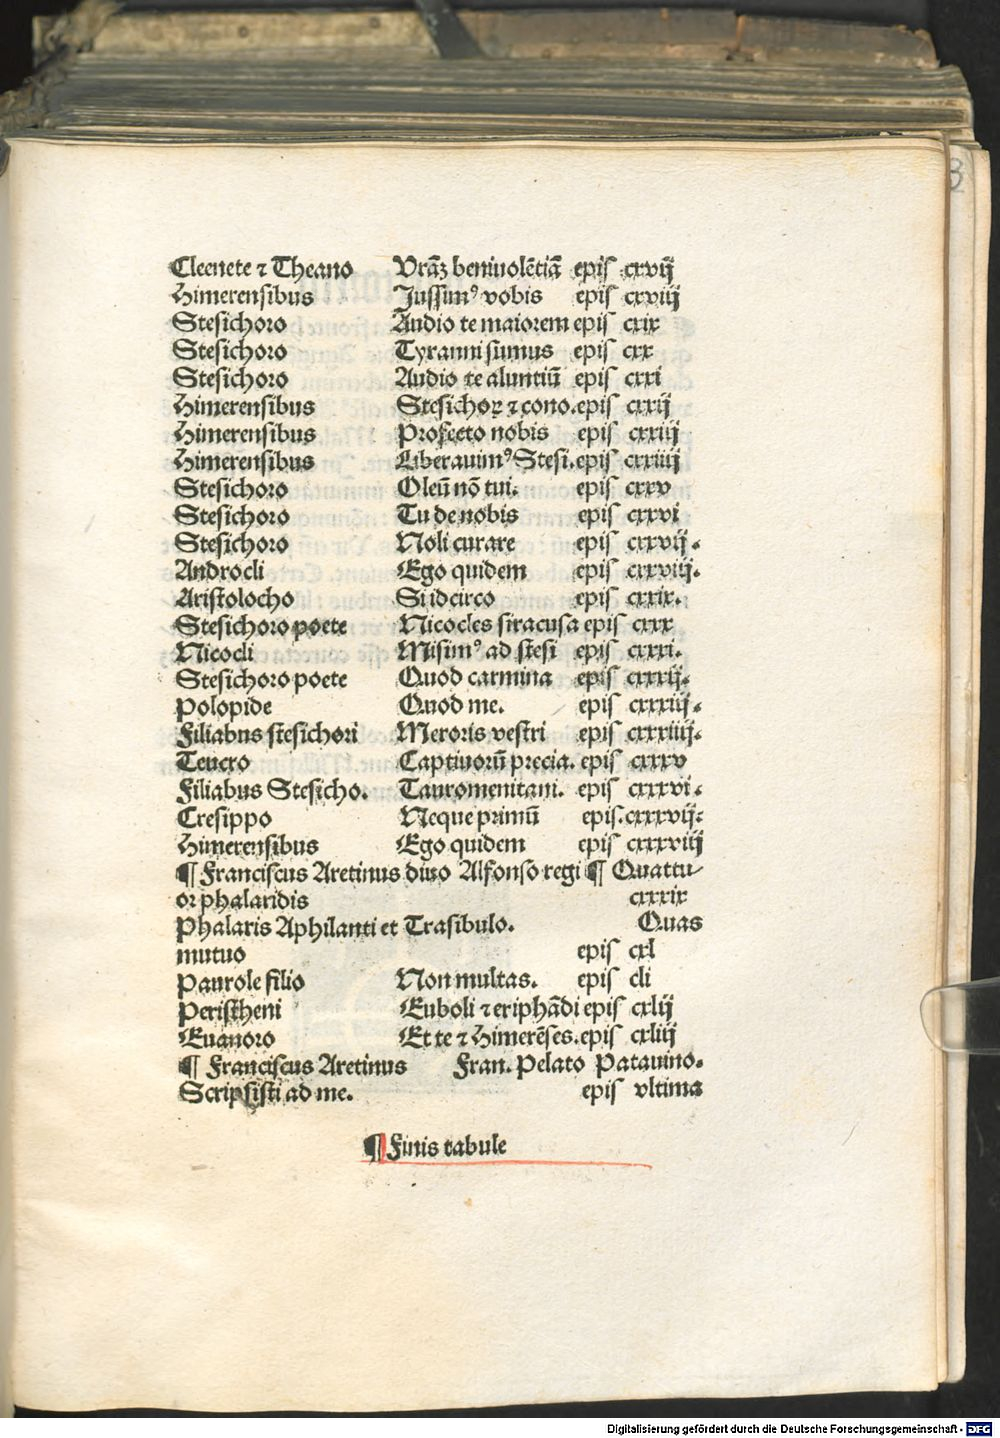 Cleenete ⁊ Theano Vr̃aȝ beniuolẽtiã epis cxvij
Himerensibus Jussimꝰ vobis epis cxviij
Stesichoro Audio te maiorem epis cxix
Stesichoro Tyranni sumus epis cxx
Stesichoro Audio te aluntiũ epis cxxi
Himerensibus Stesichoꝝ ⁊ cono. epis cxxij
Himerensibus Profecto nobis epis cxxiij
Himerensibus Liberauimꝰ Stesi. epis cxxiiij
Stesichoro Oleũ nõ tui. epis cxxv
Stesichoro Tu de nobis epis cxxvi
Stesichoro Noli curare epis cxxvij.
Androcli Ego quidem epis cxxviij.
Aristolocho Si idcirco epis cxxix.
Stesichoro poete Nicocles siracusa epis cxxx
Nicocli Misimꝰ ad stesi epis cxxxi.
Stesichoro poete Quod carmina epis cxxxij.
Polopide Quod me. epis cxxxiij.
Filiabus stesichori Meroris vestri epis cxxxiiij.
Teucro Captiuorũ precia. epis cxxxv
Filiabus Stesicho. Tauromenitani. epis cxxxvi.
Cresippo Neque primũ epis. cxxxvij:
Himerensibus Ego quidem epis cxxxviij
¶ Franciscus Aretinus diuo Alfonso regi ¶ Quattu-
or phalaridis cxxxix
Phalaris Aphilanti et Trasibulo. Quas
mutuo epis cxl
Paurole filio Non multas. epis cli
Peristheni Euboli ⁊ eriphãdi epis cxlij
Euanoro Et te ⁊ Himerẽses. epis cxliij
¶ Franciscus Aretinus Fran. Pelato Patauino.
Scripsisti ad me. epis vltima
¶ Finis tabule
Digitalisierung gefördert durch die Deutsche Forschungsgemeinschaft - DFG